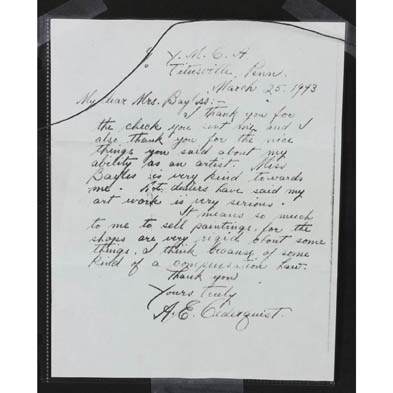 Y. M. C. A
Titusville, Penn.
March 25, 1943
My dear Mrs. Bayliss:-
I thank you for
the check you sent me and I
also thank you for the nice
things you said about my
ability as an artist. Miss
Bayles is very kind towards
me. dealers have said my
art work is very serious.
It means so much
to me to sell paintings, for the
shops are very rigid about some
things. I think because of some
kind of a compensation law.
Thank you
Yours truly
A. E. Cederquist.